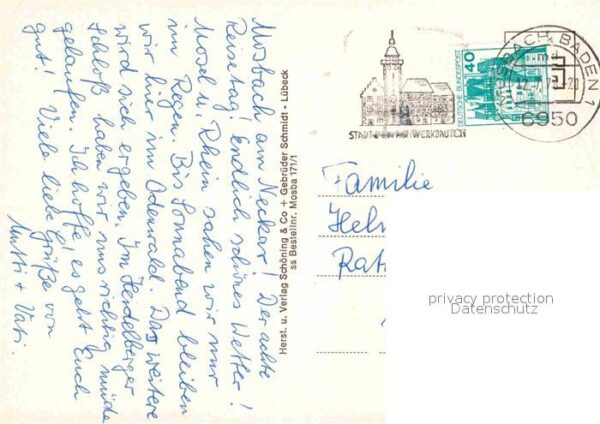 Mosbach am Neckar! Der achte
Reisetag! Endlich schönes Wetter!
Mosel u. Rhein sahen wir nur
im Regen. Bis Sonnabend bleiben
wir hier im Odenwald. Das weitere
wird sich ergeben. Im Heidelberger
Schloß haben wir uns richtig müde
gelaufen. Ich hoffe es geht Euch
gut! Viele liebe Grüße von
Mutti + Vati.
Herst. u. Verlag Schöning & Co + Gebrüder Schmidt - Lübeck
ss Bestellnr. Mosba 171/1
MOSBACH, BADEN 1
6950
DEUTSCHE BUNDESPOST
40
Familie
Helm
Rat
privacy protection
Datenschutz